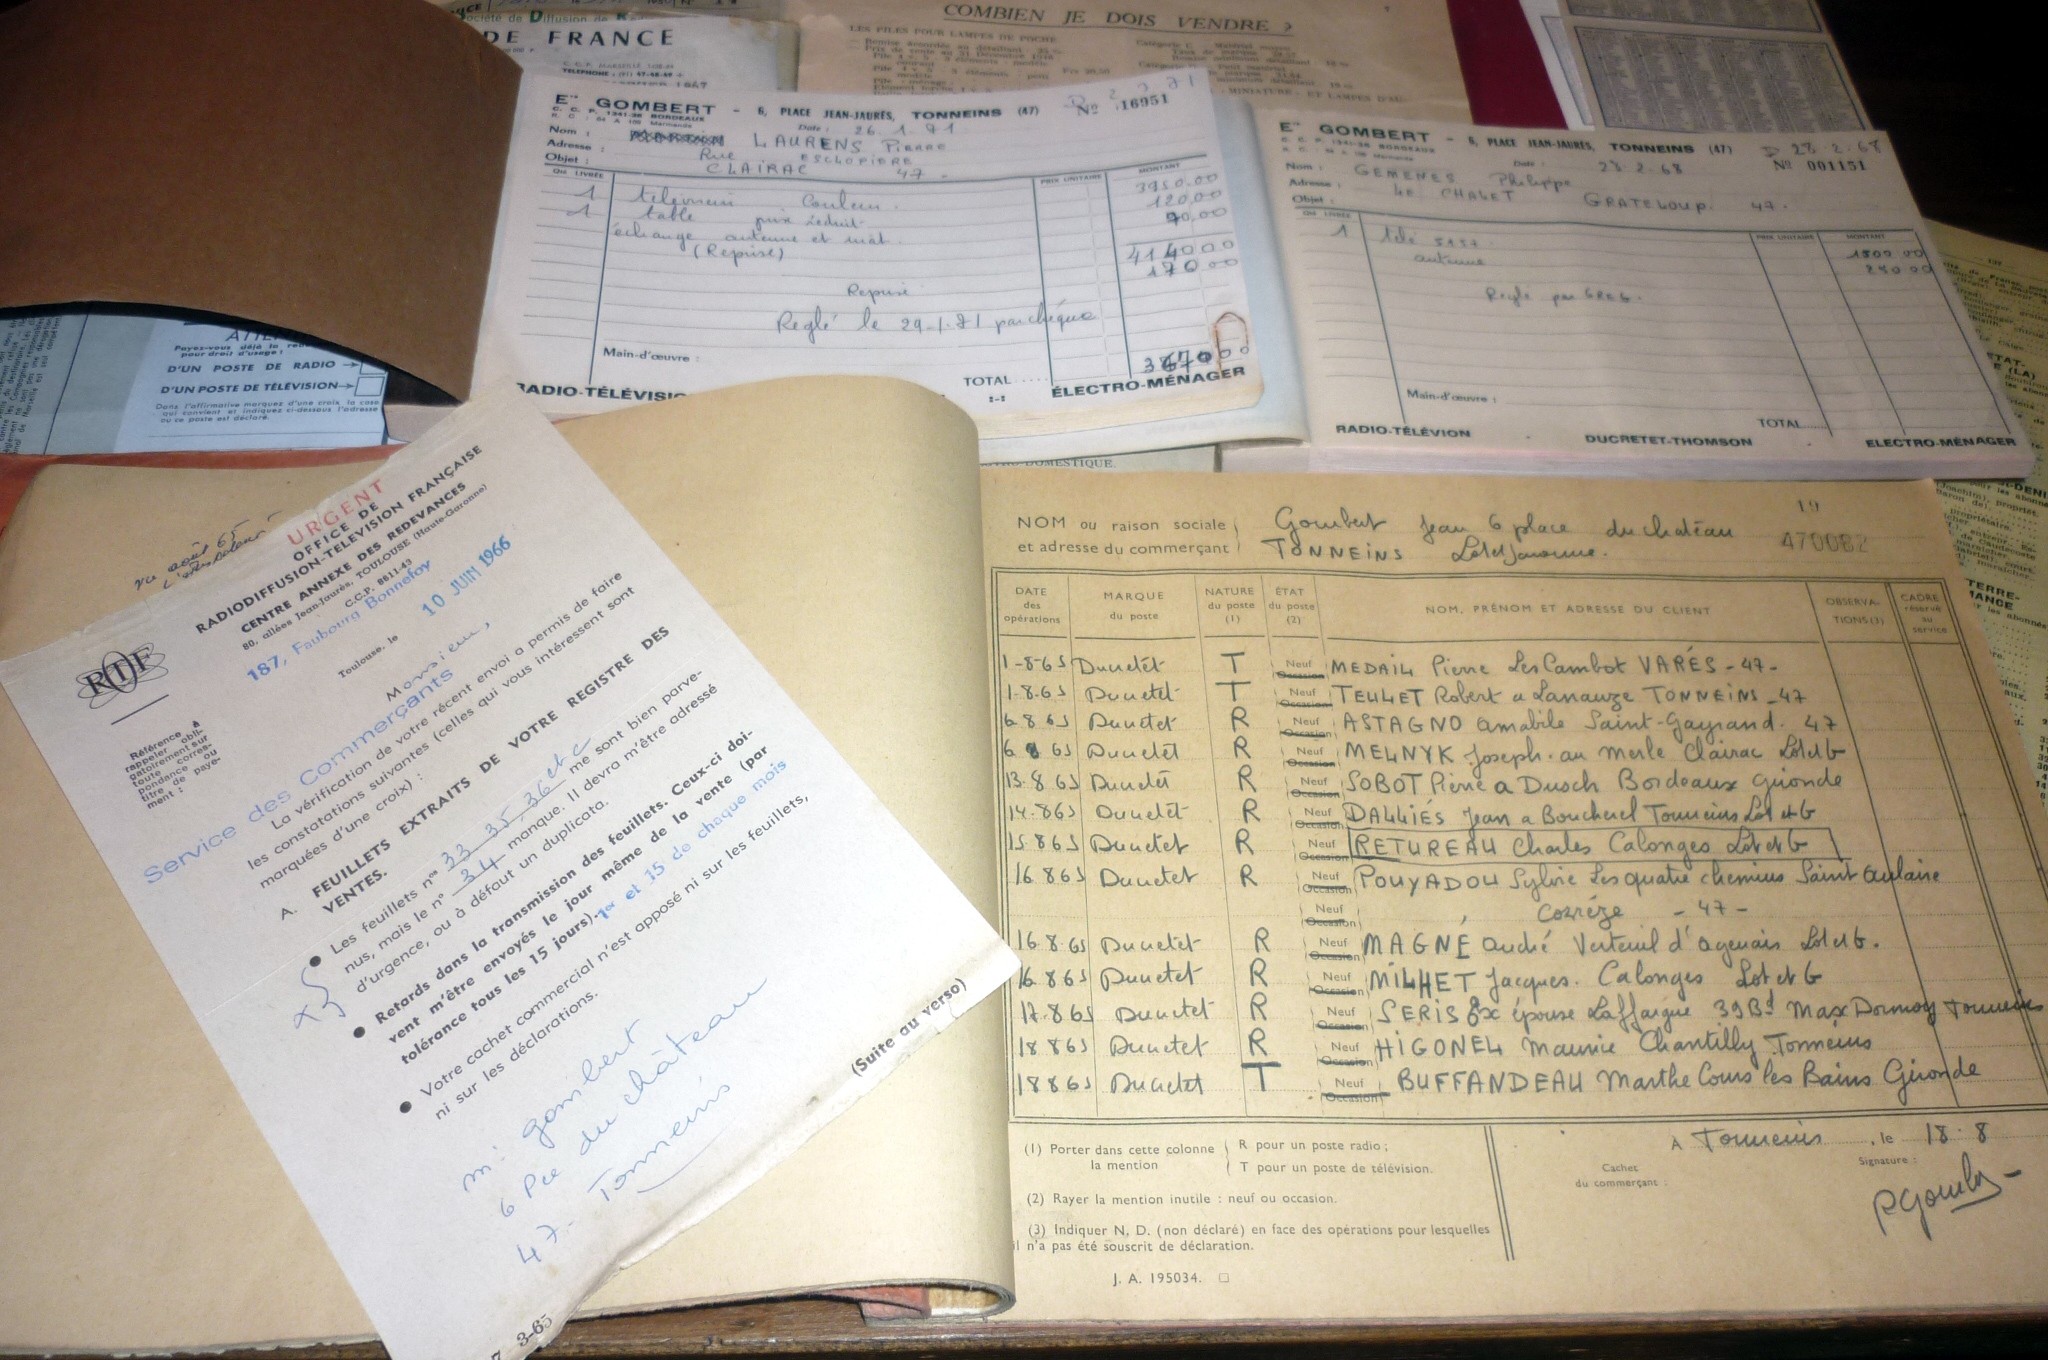 Société de Diffusion de
DE FRANCE
C.C.P. MARSEILLE
TELEPHONE : (91) 47-48-49
COMBIEN JE DOIS VENDRE ?
LES PILES POUR LAMPES DE POCHE
MINIATURE - ET LAMPES D'AU-
Ets GOMBERT - 6, PLACE JEAN-JAURÈS, TONNEINS (47) No 16951
C. C. P. 1241-36 BORDEAUX
Date : 26.1.71
Nom : LAURENS Pierre
Adresse : Rue ESCLOPIÈRE
Objet : CLAIRAC 47 -
Qté LIVRÉE PRIX UNITAIRE MONTANT
1 télévision Couleur. 3950.00
1 table prix réduit 120.00
échange antenne et mat. 70.00
(Reprise) 4140 00
170 00
Reprise
Reglé le 29-1-71 par chéque
Main-d'œuvre :
TOTAL ..... 3870 00
RADIO-TÉLÉVISI ÉLECTRO-MÉNAGER
Ets GOMBERT - 6, PLACE JEAN-JAURÈS, TONNEINS (47) D 28.2.68
C. C. P. 1241-36 BORDEAUX
Date : 28.2.68 No 001151
Nom : GEMENES Philippe
Adresse : LE CHALET GRATELOUP. 47.
Objet :
Qté LIVRÉE PRIX UNITAIRE MONTANT
1 télé 5157. 1500 00
antenne 250 00
Reglé par GREG.
Main-d'œuvre :
TOTAL.....
RADIO-TÉLÉVION DUCRETET-THOMSON ELECTRO-MÉNAGER
Payez-vous déjà la
pour droit d'usage :
D'UN POSTE DE RADIO →
D'UN POSTE DE TÉLÉVISION →
Dans l'affirmative marquez d'une croix la case
qui convient et indiquez ci-dessous l'adresse
où ce poste est déclaré.
DOMESTIQUE.
vu août 65
URGENT
OFFICE DE
RADIODIFFUSION-TELEVISION FRANÇAISE
CENTRE ANNEXE DES REDEVANCES
80, allées Jean-Jaurès, TOULOUSE (Haute-Garonne)
C.C.P. 8611-43
187, Faubourg Bonnefoy
Toulouse, le 10 JUIN 1966
ORTF
Référence à
rappeler obli-
gatoirement sur
toute corres-
pondance ou
titre de paye-
ment :
Monsieur,
Service des Commerçants
La vérification de votre récent envoi a permis de faire
les constatations suivantes (celles qui vous intéressent sont
marquées d'une croix) :
A. FEUILLETS EXTRAITS DE VOTRE REGISTRE DES
VENTES.
● Les feuillets nos 33 35 36 etc me sont bien parve-
nus, mais le n° 34 manque. Il devra m'être adressé
d'urgence, ou à défaut un duplicata.
● Retards dans la transmission des feuillets. Ceux-ci doi-
vent m'être envoyés le jour même de la vente (par
tolérance tous les 15 jours). 1er et 15 de chaque mois
● Votre cachet commercial n'est apposé ni sur les feuillets,
ni sur les déclarations.
(Suite au verso)
Mr gombert
6 Pce du château
47 - Tonneins
3-65
19
NOM ou raison sociale Gombert Jean 6 place du chatéau
et adresse du commerçant TONNEINS Lot et Garonne. 470082
DATE des opérations MARQUE du poste NATURE du poste (1) ÉTAT du poste (2) NOM, PRÉNOM ET ADRESSE DU CLIENT OBSERVA-TIONS (3) CADRE réservé au service
1-8-65 Ducretet T Neuf Occasion MEDAIL Pierre Les Cambot VARÉS - 47 -
1-8-65 Ducretet T Neuf Occasion TEULET Robert a Lanauze TONNEINS - 47
6 8 65 Ducretet R Neuf Occasion ASTAGNO amabile Saint-Gayrand. 47
6 8 65 Ducretet R Neuf Occasion MELNYK Joseph. au Merle Clairac Lot et G
13-8 65 Ducretet R Neuf Occasion SOBOT Pierre a Dusch Bordeaux Gironde
14.8 65 Ducretet R Neuf Occasion DALLIÉS Jean a Boucherel Tonneins Lot et G
15.8 65 Ducretet R Neuf Occasion RETUREAU Charles Calonges Lot et G
16.8 65 Ducretet R Neuf Occasion POUYADOU Sylvie Les quatre chemins Saint Aulaire
Neuf Occasion Corrèze - 47 -
16.8.65 Ducretet R Neuf Occasion MAGNÉ André Verteuil d'agenais Lot et G.
16 8 65 Ducretet R Neuf Occasion MILHET Jacques. Calonges Lot et G
17.8 65 Ducretet R Neuf Occasion SERIS épouse Laffargue 39 Bd Max Dormoy Tonneins
18 8 65 Ducretet R Neuf Occasion HIGONEL Maurice Chantilly Tonneins
18 8 65 Ducretet T Neuf Occasion BUFFANDEAU Marthe Cours les Bains Gironde
(1) Porter dans cette colonne la mention R pour un poste radio ;
T pour un poste de télévision.
(2) Rayer la mention inutile : neuf ou occasion.
(3) Indiquer N. D. (non déclaré) en face des opérations pour lesquelles
il n'a pas été souscrit de déclaration.
J. A. 195034.
A Tonneins, le 18.8
Cachet du commerçant :
Signature :